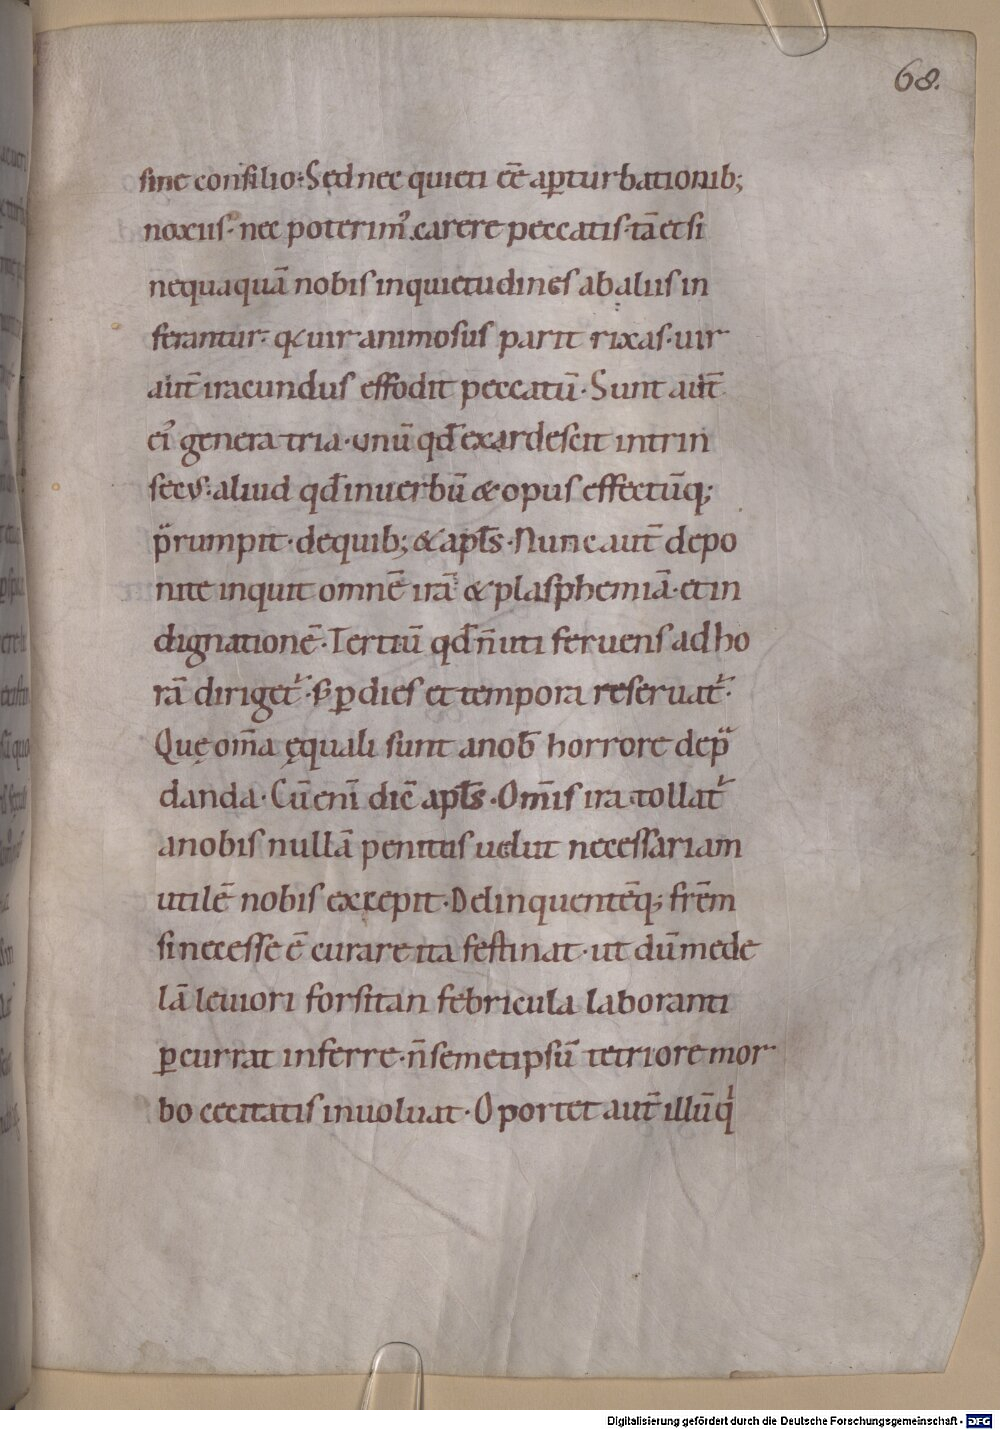 68.
sine consilio· Sed nec quieti eē a ꝑturbationib;
noxus· nec poterim᾿ carere peccatis· tā etsi
nequaquā nobis inquietudines ab aliis in
ferantur· q& uir animosus parit rixas· uir
aut̄ iracundus effodit peccatū· Sunt aut̄
ei᾿ genera tria· unū qđ exardescit intrin
secus· aliud qđ in uerbū & opus effectūq;
p̄rumpit· de quib; & apłs· Nunc aut̄ depo
nite inquit omnē irā & plasphemiā· et in
dignationē· Tertiū qđ n̄ uti feruens ad ho
rā diriget᷑· s; ꝑ dies et tempora reseruat᷑·
Quę om̄a ęquali sunt a nob̄ horrore dep̄
danda· Cū enī dīc apłs· Om̄is ira tollat᷑
a nobis nullā penitus uelut necessariam
utilē nobis excepit· Delinquentēq; frēm
si necesse ē curare ita festinat· ut dū mede
lā leuiori forsitan febricula laboranti
ꝑcurrat inferre· n̄ semetipsū tetriore mor
bo cecitatis inuoluat· Oportet aut̄ illū qⁱ
Digitalisierung gefördert durch die Deutsche Forschungsgemeinschaft - DFG